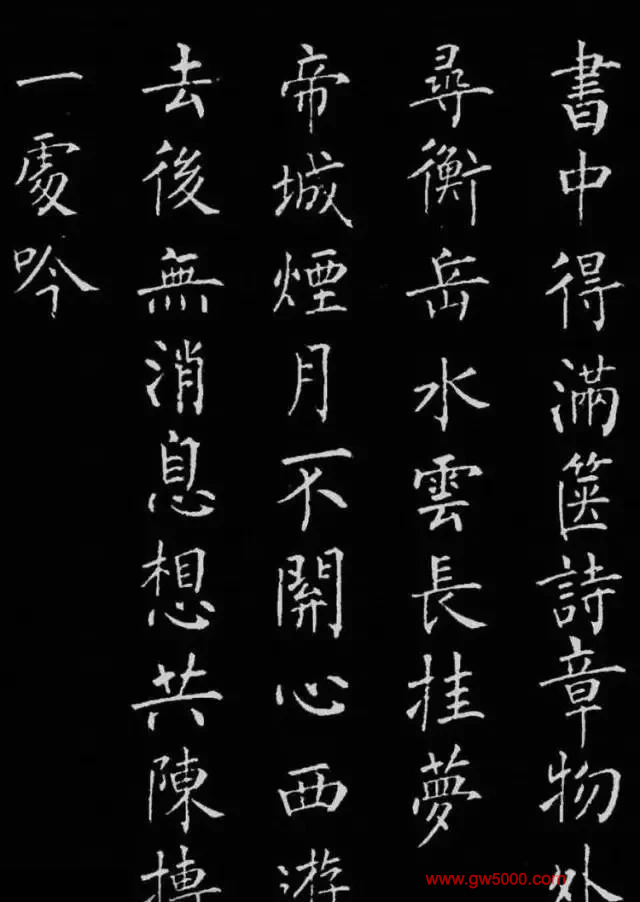 書中得滿箧詩章物外
尋衡岳水雲長挂夢
帝城煙月不關心西游
去後無消息想共陳摶
一處吟
www.gw5000.com